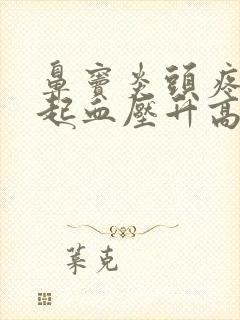 鼻竇炎頭疼
起血壓升高
萊克